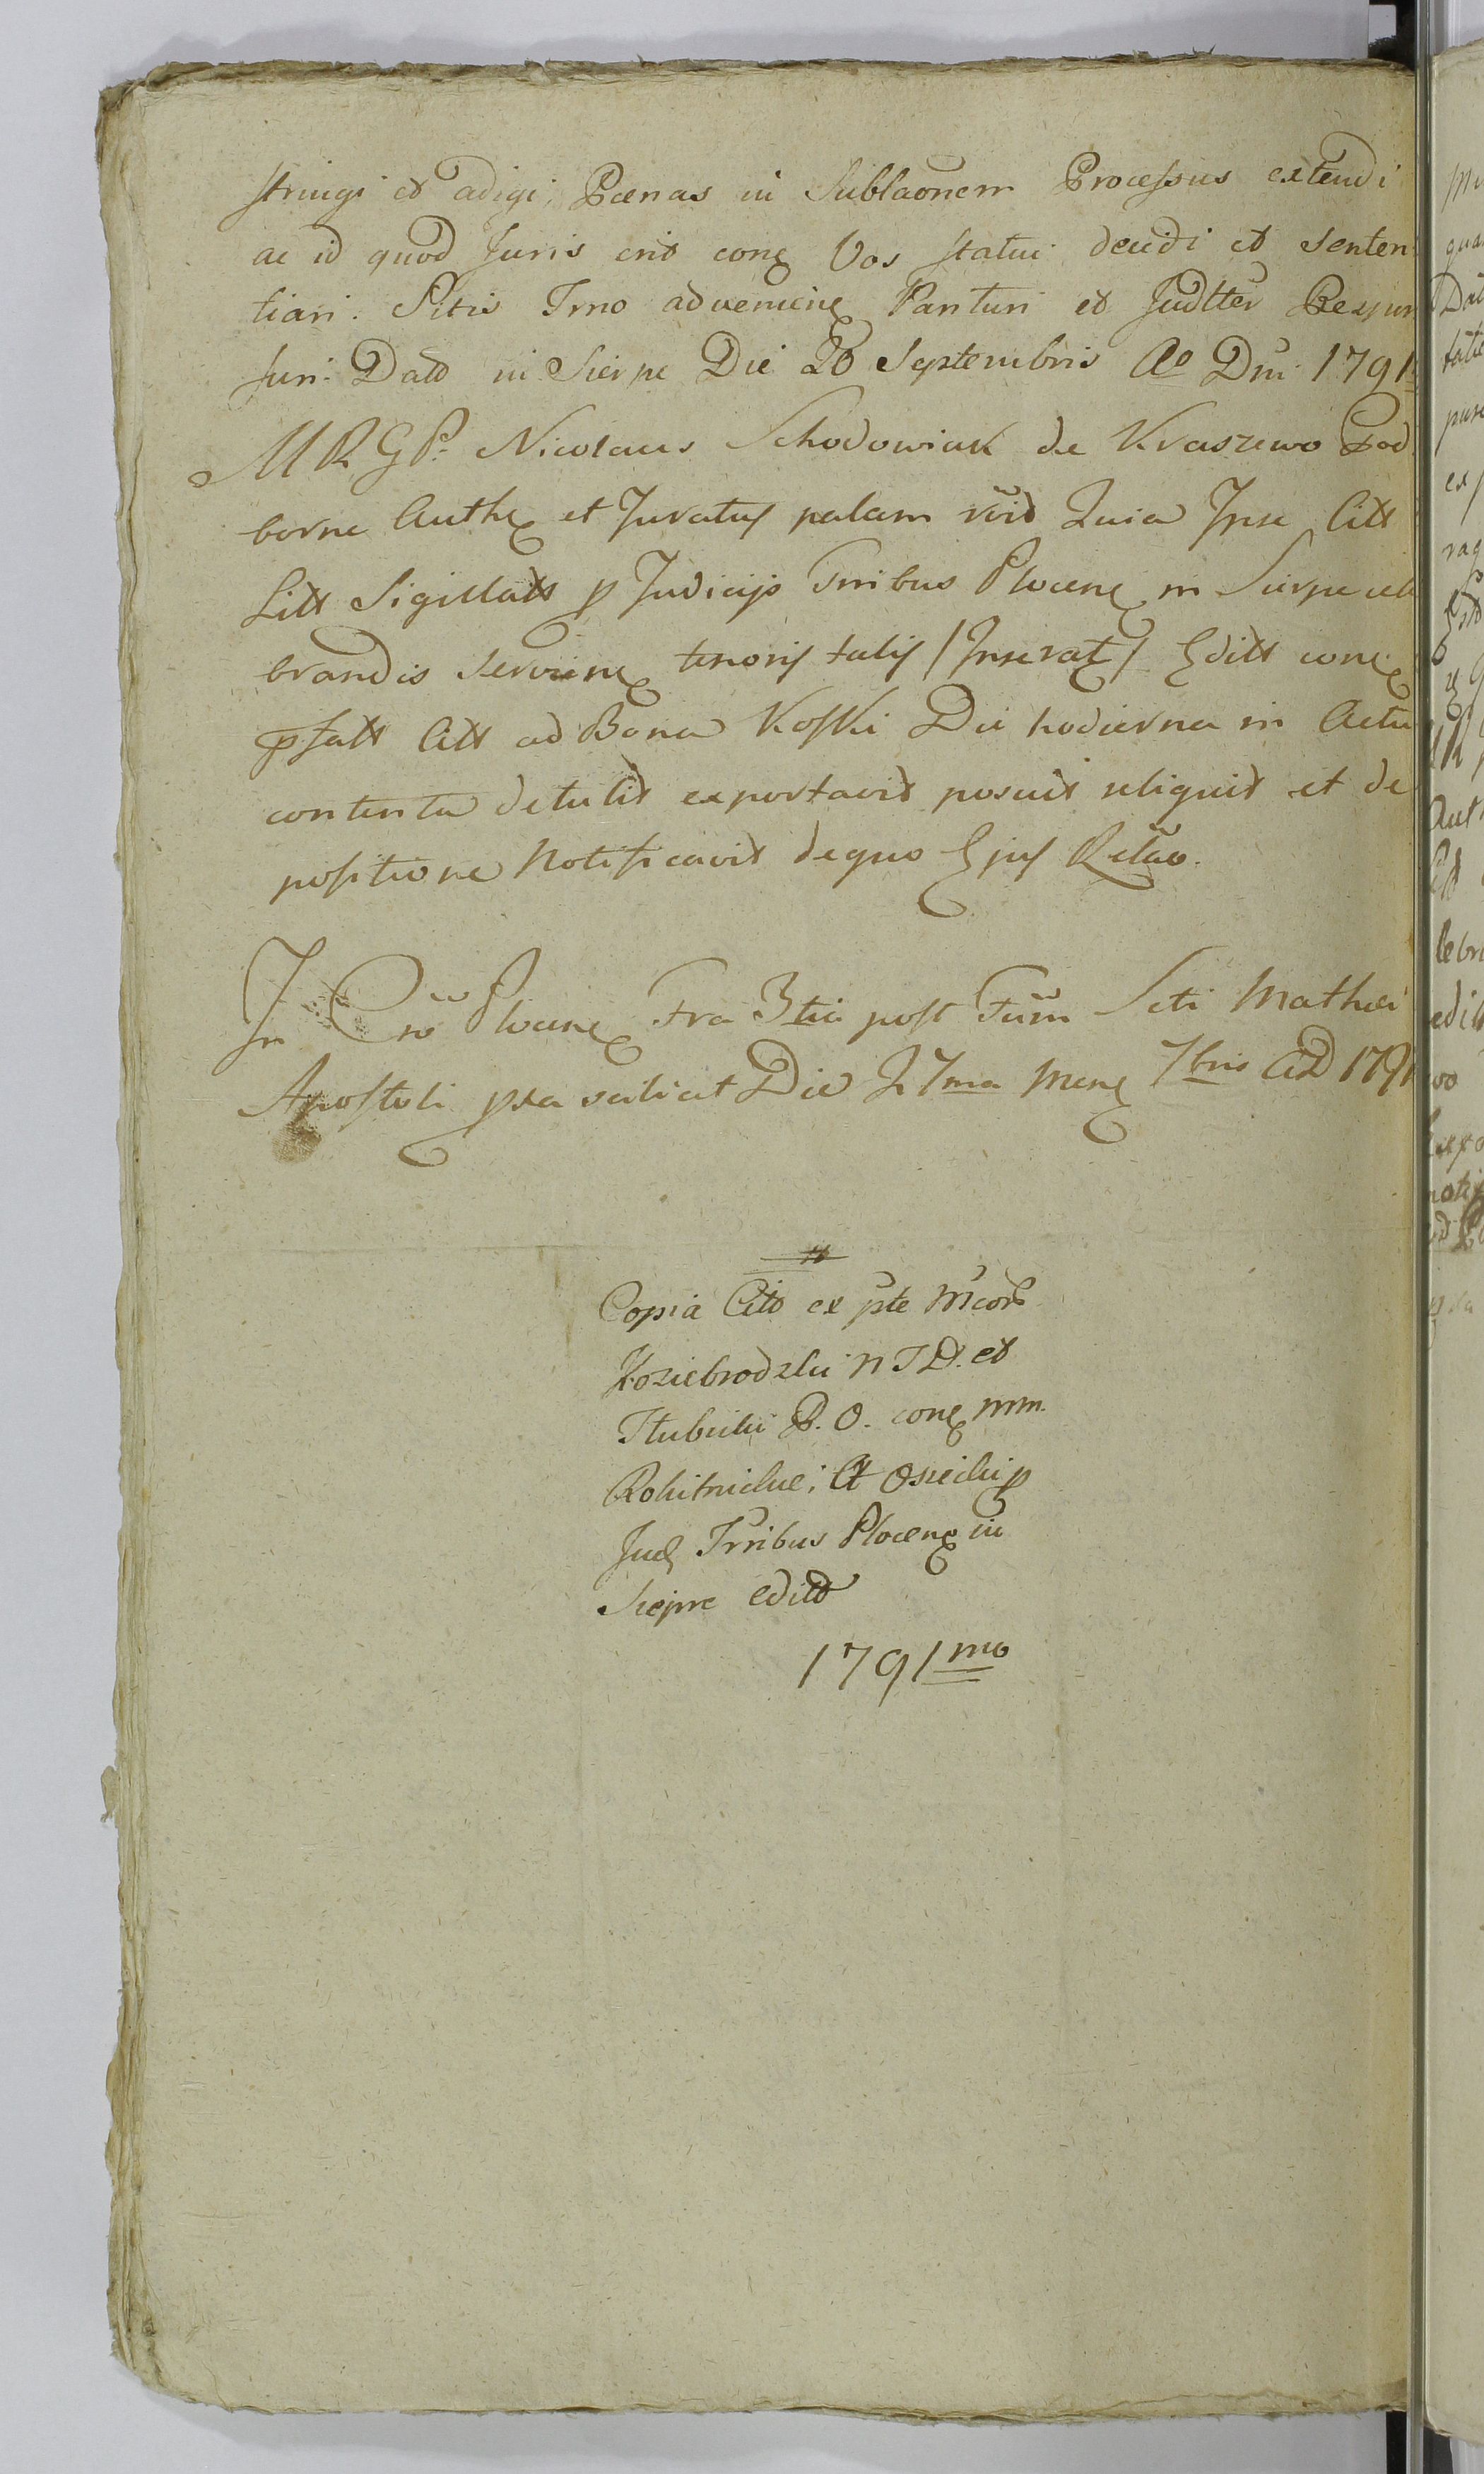 stringi et adigi, Pœnas in Sublaõnem Processus extendi
ac id quod Juris erit conq Vos statui decidi et Senten
tiari. Sitis Trno advenienq Parituri et Judtter Respon
suri. Datt in Sierpe Die 20 Septembris Ao Dni 1791
MRGP. Nicolaus Schodowiak de Kraszewo Pod
borne Authq et Juratus palam rõid Quia Ipse Citt
Litt Sigillatt p Judicijs Trribus Plocenq in Sierpe cele
brandis servienq tenoris talis /Inserat/ Editt conq
psatt Citt ad Bona Koski Die hodierna in Actu
contenta detulit exportavit posuit reliquit et de
positione Notificavit dequo Ejus Relão.
In Cro Plocenq Fra 3tia post Fum Scti Mathæi
Apostoli pxa scilicet Die 27ma Mensq 7bris AD 1791
Copia Citt ex pte Mcor
Koziebrodzki NTD. et
P. O. conq MM.
Rokitnickie; et Osiecki p
Judq Trribus Plocenq in
Siepre editt
1791mo